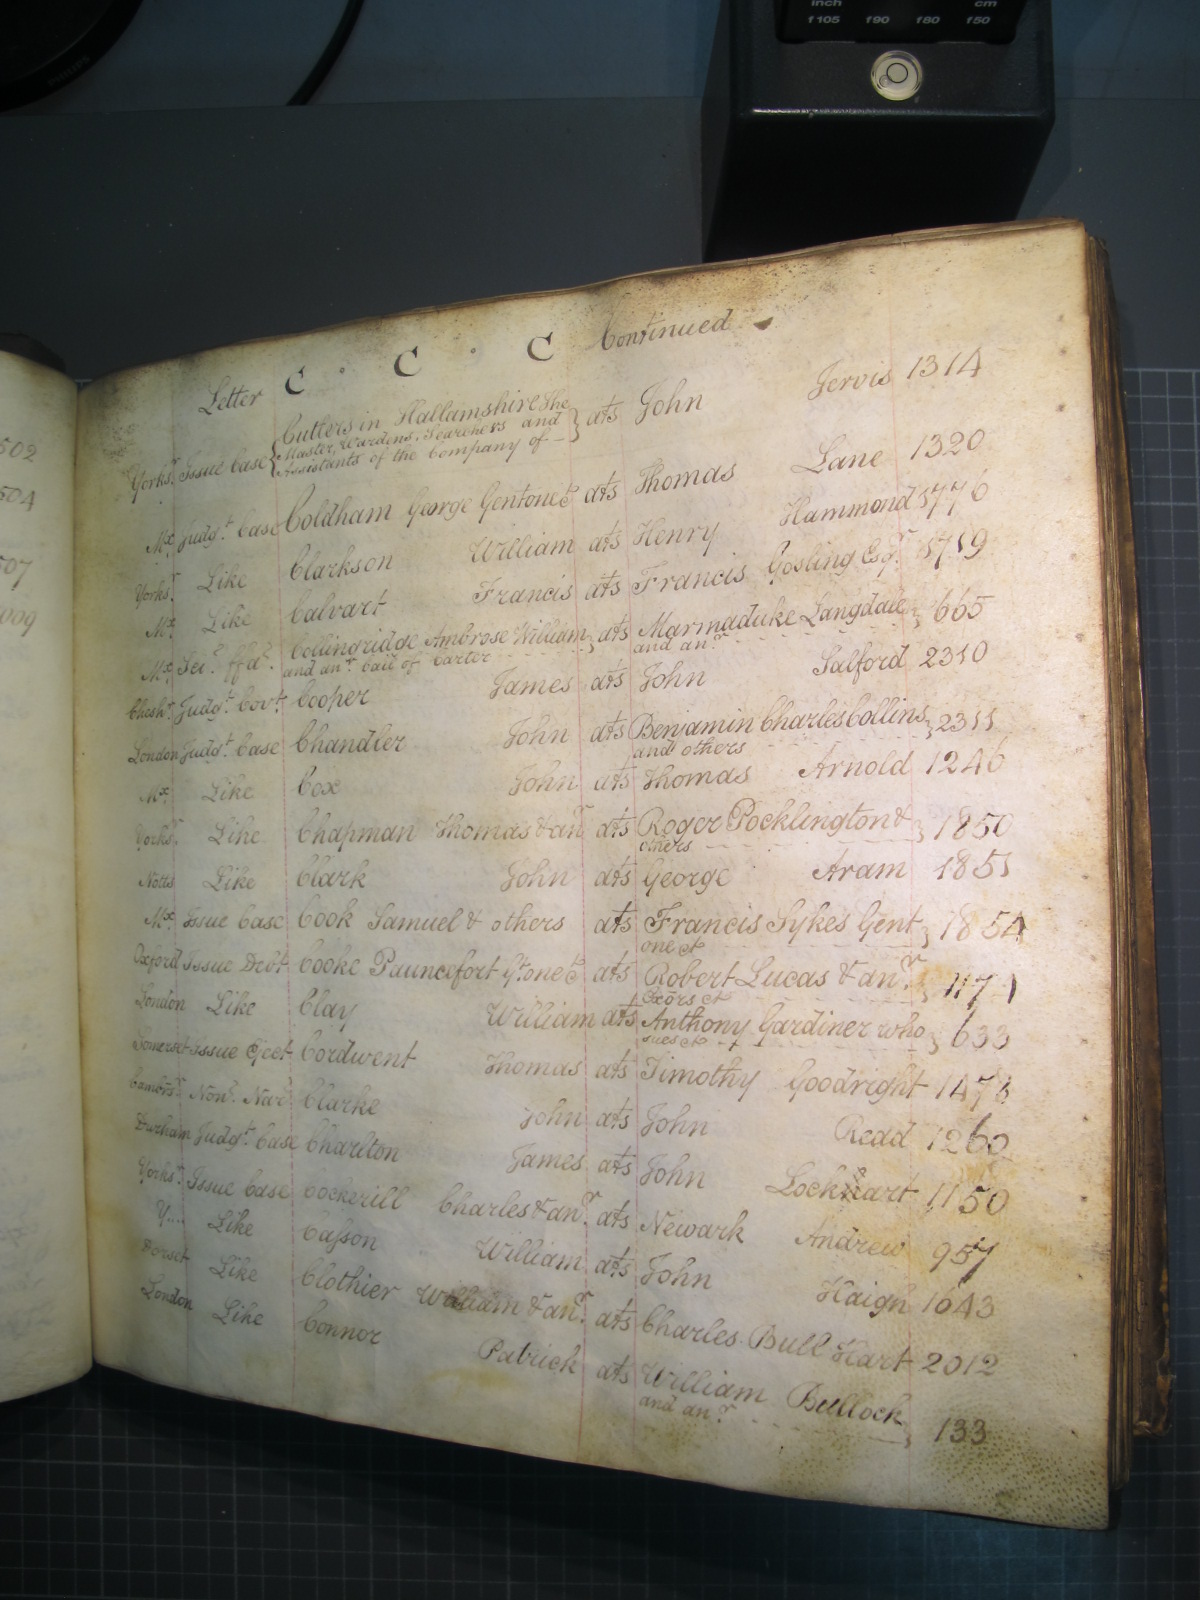 inch cm
f105 f90 f80 f50
PHILIPS
502
504
507
Letter C C C Continued
Yorks.r Issue Case Cutlers in Hallamshire The Master, Wardens, Searchers and Assistants of the Company of ats John Jervis 1314
Mx Judgt. Case Coldham George Gent one &c ats Thomas Lane 1320
Yorks.r Like Clarkson William ats Henry Hammond 1776
Mx Like Calvart Francis ats Francis Gosling Esqr. 1719
Mx Sci.e ffas. Collingridge Ambrose William and anr. bail of Carter ats Marmaduke Langdale and anr. 665
Chesh.r Judgt. Covt. Cooper James ats John Salford 2310
London Judgt. Case Chandler John ats Benjamin Charles Collins and others 2311
Mx Like Cox John ats Thomas Arnold 1246
Yorks.r Like Chapman Thomas & anr ats Roger Pocklington & others 1850
Notts Like Clark John ats George Aram 1851
Mx Issue Case Cook Samuel & others ats Francis Sykes Gent one &c 1854
Oxford Issue Debt Cooke Pauncefort Gt. one &c ats Robert Lucas & anr. Exõrs &c 1171
London Like Clay William ats Anthony Gardiner who sues &c 633
Somerset Issue Eject Cordwent Thomas ats Timothy Goodright 1473
Cambr.s Non. Nar. Clarke John ats John Read 1260
Durham Judgt. Case Charlton James ats John Lockhart 1150
Yorks.r Issue Case Cockerill Charles & anr. ats Newark Andrew 957
Y.... Like Casson William ats John Haigh 1643
Dorset Like Clothier William & anr. ats Charles Bull Hart 2012
London Like Connor Patrick ats William Bullock and anr. 133